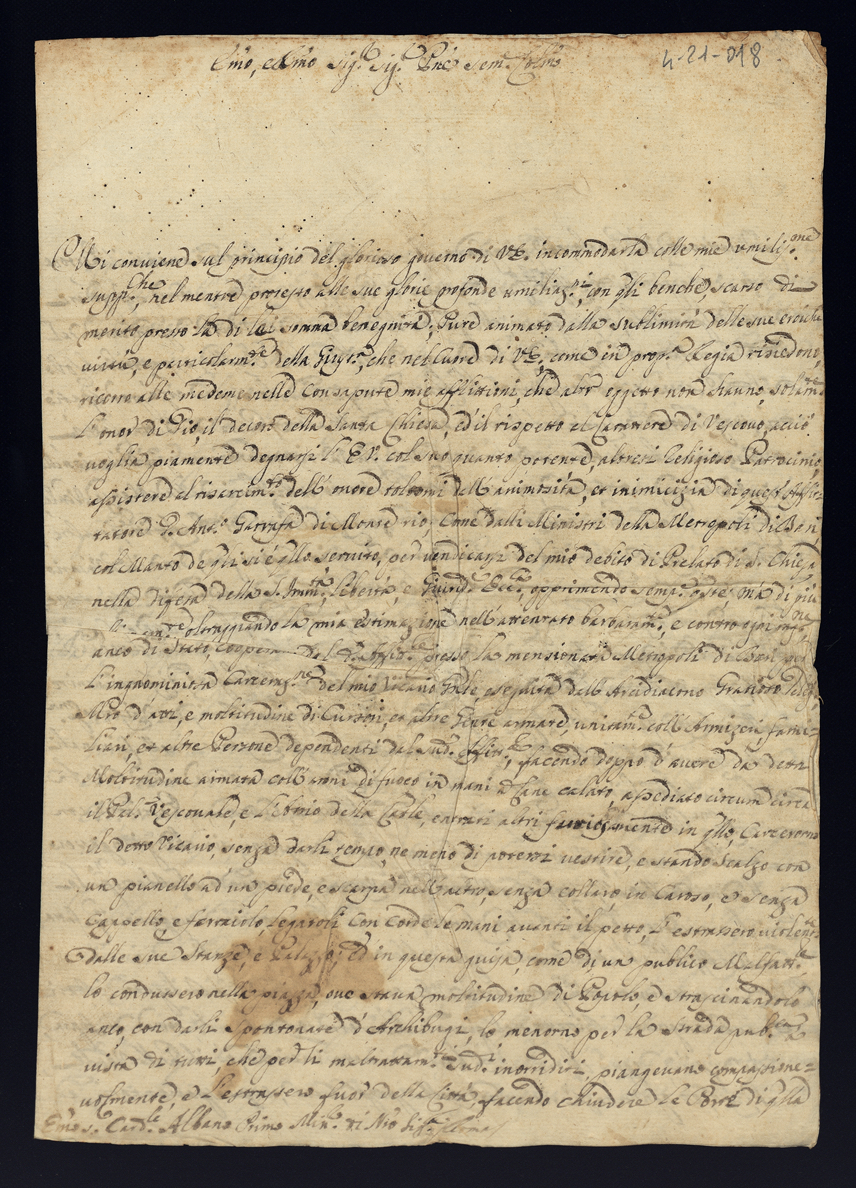 4-21-018
Emo, e Rmo Sig.r Sig.r Pne Sem. Colmo
Mi conviene sul principio del glorioso governo di V.E. incommodarla colle mie umiliss.me
suppl.che, nel mentre protesto alle sue glorie profonde umiliaz.ni, con gli benche scarso di
merito presso la di lei somma benegnità; Pure animato dalla sublimità delle sue eroiche
virtù, e particolarm.te della Giust.a, che nel Cuore di V.E., come in prop.a Regia risiedono,
ricorro alle medeme nelle consapute mie afflittioni, che altr' oggetto non hanno, solam.te
L'onor di Dio, il decoro della Santa Chiesa, ed il rispetto al Carattere di Vescovo, acciò
voglia piamente degnarsi l'E.V. col suo quanto potente, altresì Religioso Patrocinio,
assistere al risarcim.to dell'onore toltomi dall'animosità, et inimicizia di quest'
D. Ant.o di Monte rio, come dalli Ministri della Metropoli di Bari,
col Manto de quali si è servito, per vendicarsi del mio debito di Prelato di S. Chiesa
nella difesa della S. Imm.tà, Libertà, e Giurisd. Ecc.a opprimendo semp.e ma di più
oltraggiando la mia estimazione nell'attentato barbaram.te, e contro ogni
anco di Stato, presso la mensionata Metropoli di Bari per
L'ingnominiosa Carceraz.ne del mio Vicario Gnle, eseguita dall'Arcidiacono
Mro d'atti, e moltitudine di Cursori, et altre Gente armate, unitam.te coll'Armizeri fami=
liari, et altre Persone dependenti dal sud.o facendo doppo d'avere da detta
Moltitudine armata coll'armi di fuoco in mani a Cane calato, assediato circum circa
il Pal. Vescovale, e L'Atrio della Catle, entrati altri furtivamente in qllo, Carcerorno
il detto Vicario, senza darli tempo, ne meno di potersi vestire, e stando Scalzo con
un pianello ad un piede, e scarpa nell'altro, senza collaro, in Camiso, e senza
Cappello, e ferraiolo, legatoli con corde le mani avanti il petto, L'estrassero violent.e
dalle sue Stanze, e Palazzo; ed in questa guisa come di un publico Malfatt.re
lo condussero nella piazza, ove stava moltitudine di Popolo, e strascinandolo
anco, con darli Spontonate d'Archibugi, lo menorno per la Strada pub.ca a
vista di tutti, che per li maltrattam.ti Sud.i inorriditi, piangevano compassione=
volmente, e L'estrassero fuor della Città, facendo chiudere le Porte di qlla
Emo S. Card.le Albano Primo Min.o di Nro Sig.re